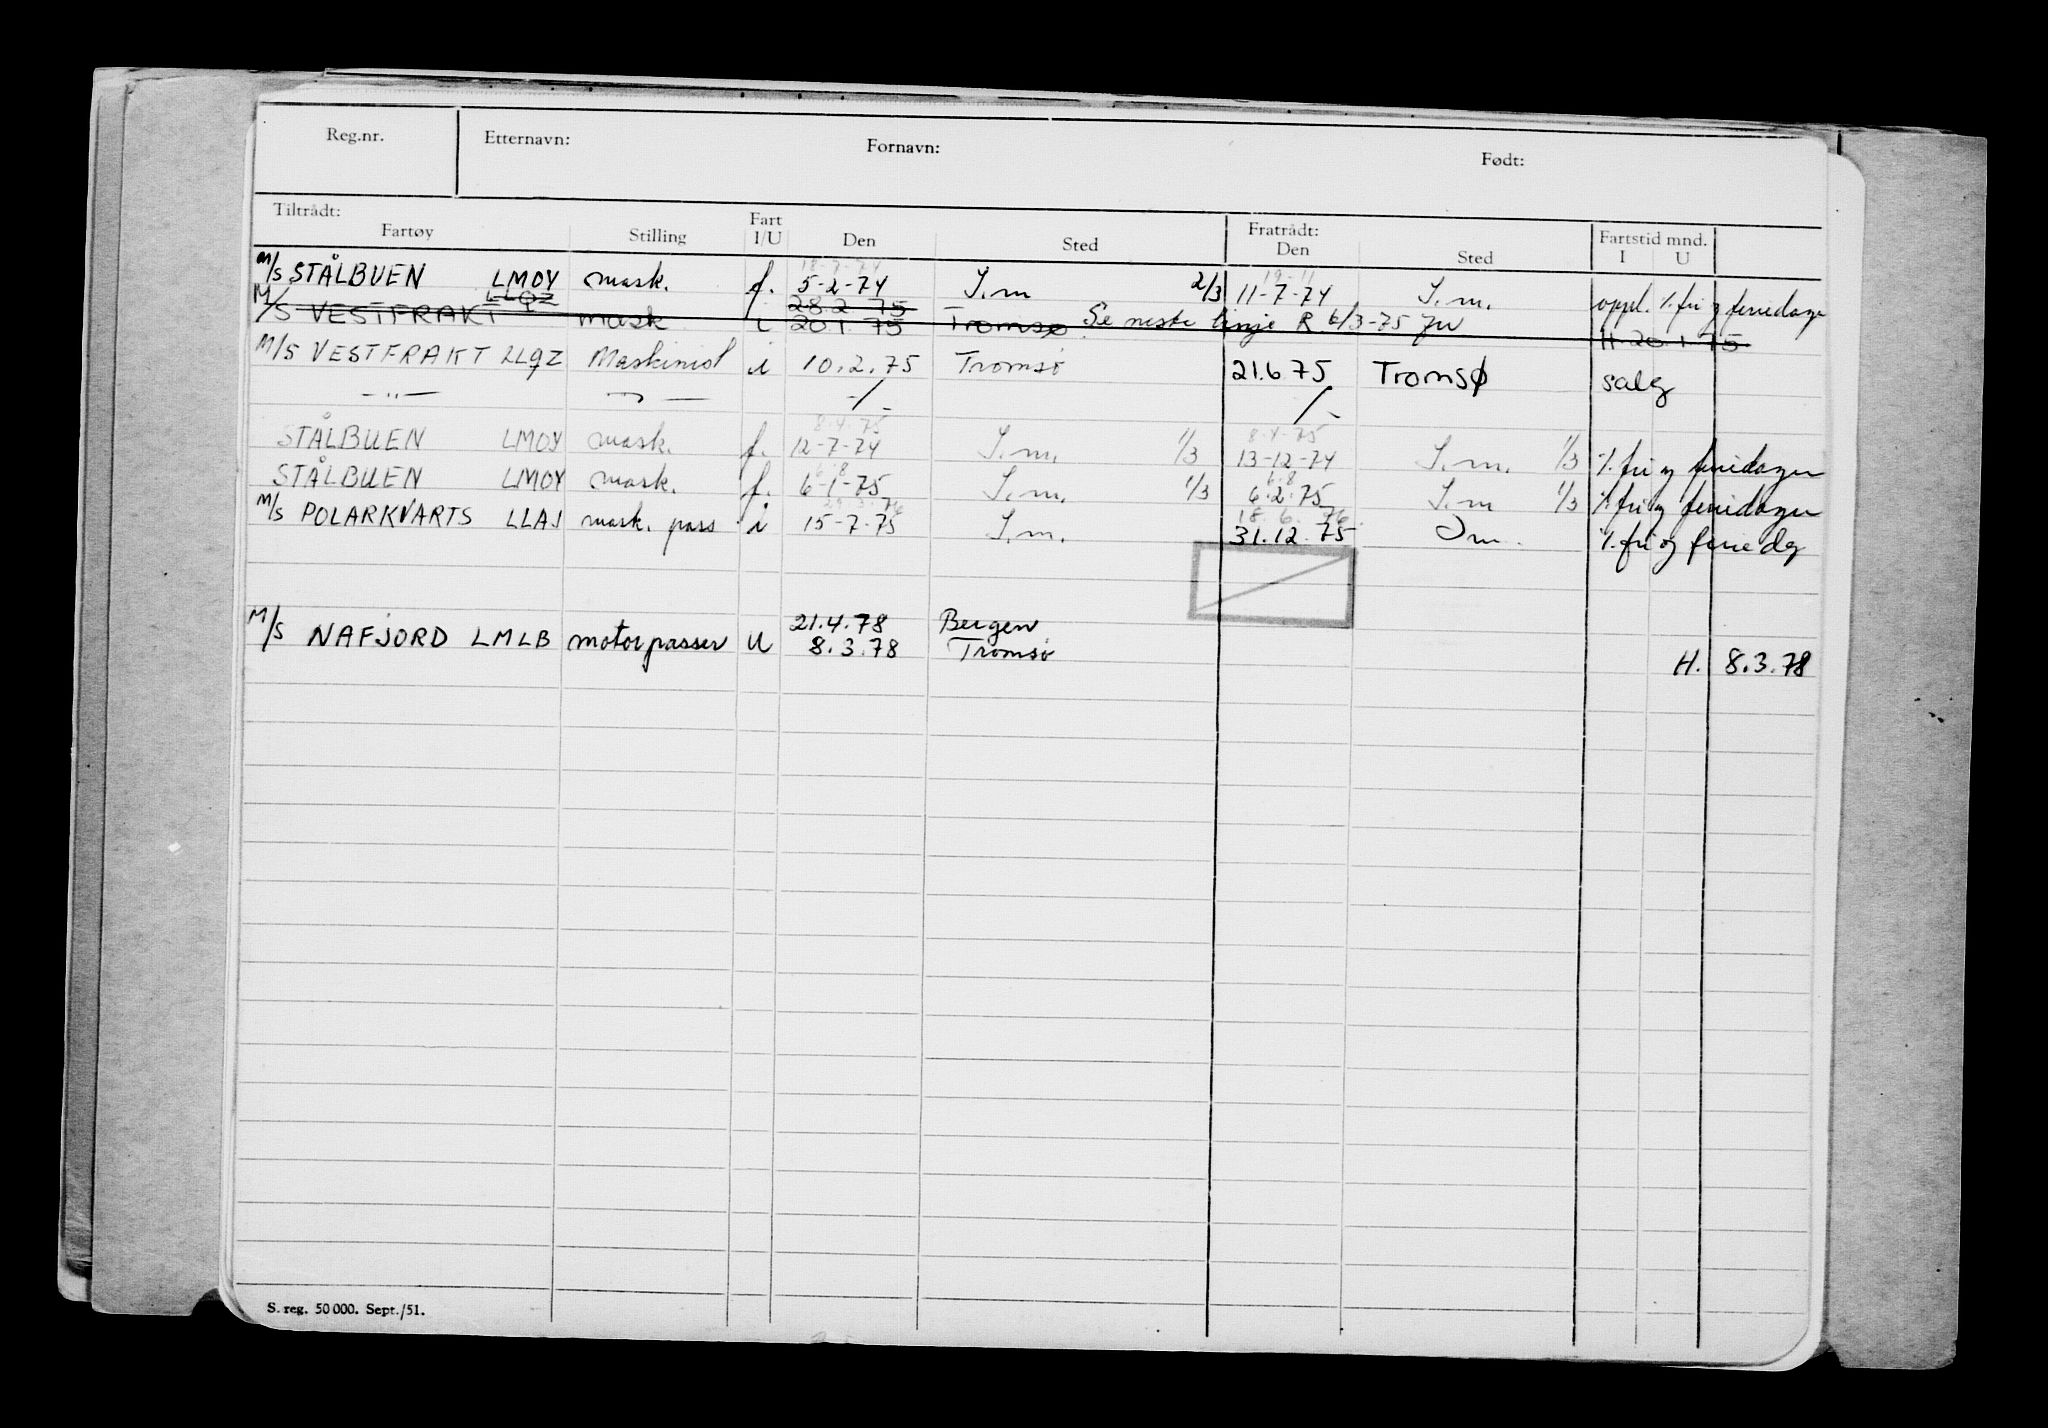 Reg.nr. Etternavn: Fornavn: Født:
Tiltrådt: Fartøy Stilling Fart I/U Den Sted Fratrådt: Den Sted Fartstid mnd. I U
18-7-74 19-11
M/S STÅLBUEN LMOY mask. f. 5-2-74 I.m 2/3 11-7-74 I.m. oppl. %. fri og feriedager
LLQZ 28.2 75
M/S VESTFRAKT mask i 20.1.75 Tromsø. Se neste linje R 6/3-75 H. 20.1.75
M/S VESTFRAKT LLQZ Maskinist i 10.2.75 Tromsø 21.6 75 Tromsø salg
—"— —"— -/- -/-
8.4.75 8.4.75
STÅLBUEN LMOY mask. f. 12-7-74 I.m. 1/3 13-12-74 I.m. 1/3 %. fri og feriedager
6.8 6.8
STÅLBUEN LMOY mask. f. 6-1-75 I.m. 1/3 6.2.75 I.m 1/3 %. fri og feriedager
18.6.76.
M/S POLARKVARTS LLAJ mask. pass i 15-7-75 I.m. 31.12.75 Im. %. fri og ferie dg
21.4.78 Bergen
M/S NAFJORD LMLB motorpasser U 8.3.78 Tromsø H. 8.3.78
S. reg. 50 000. Sept./51.